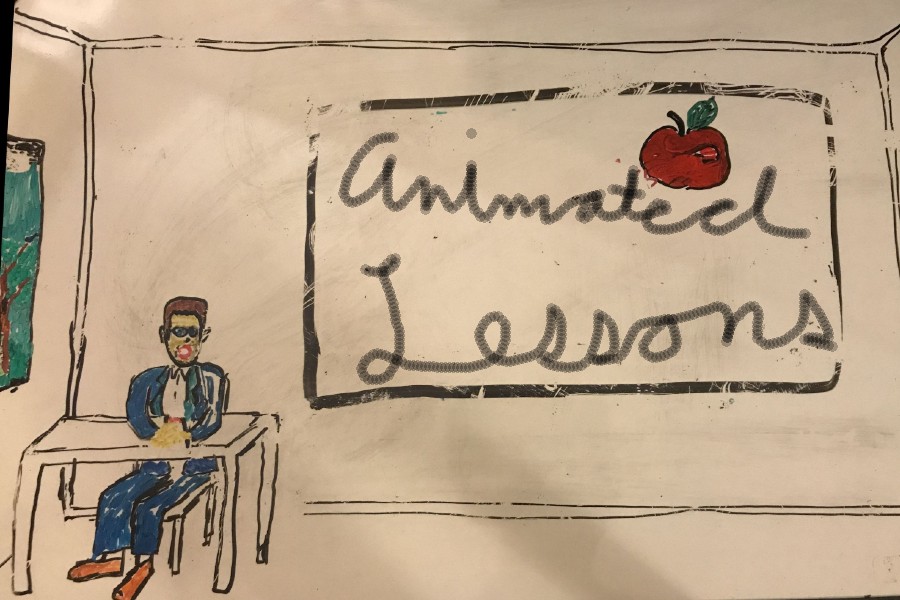 Animated
Lessons